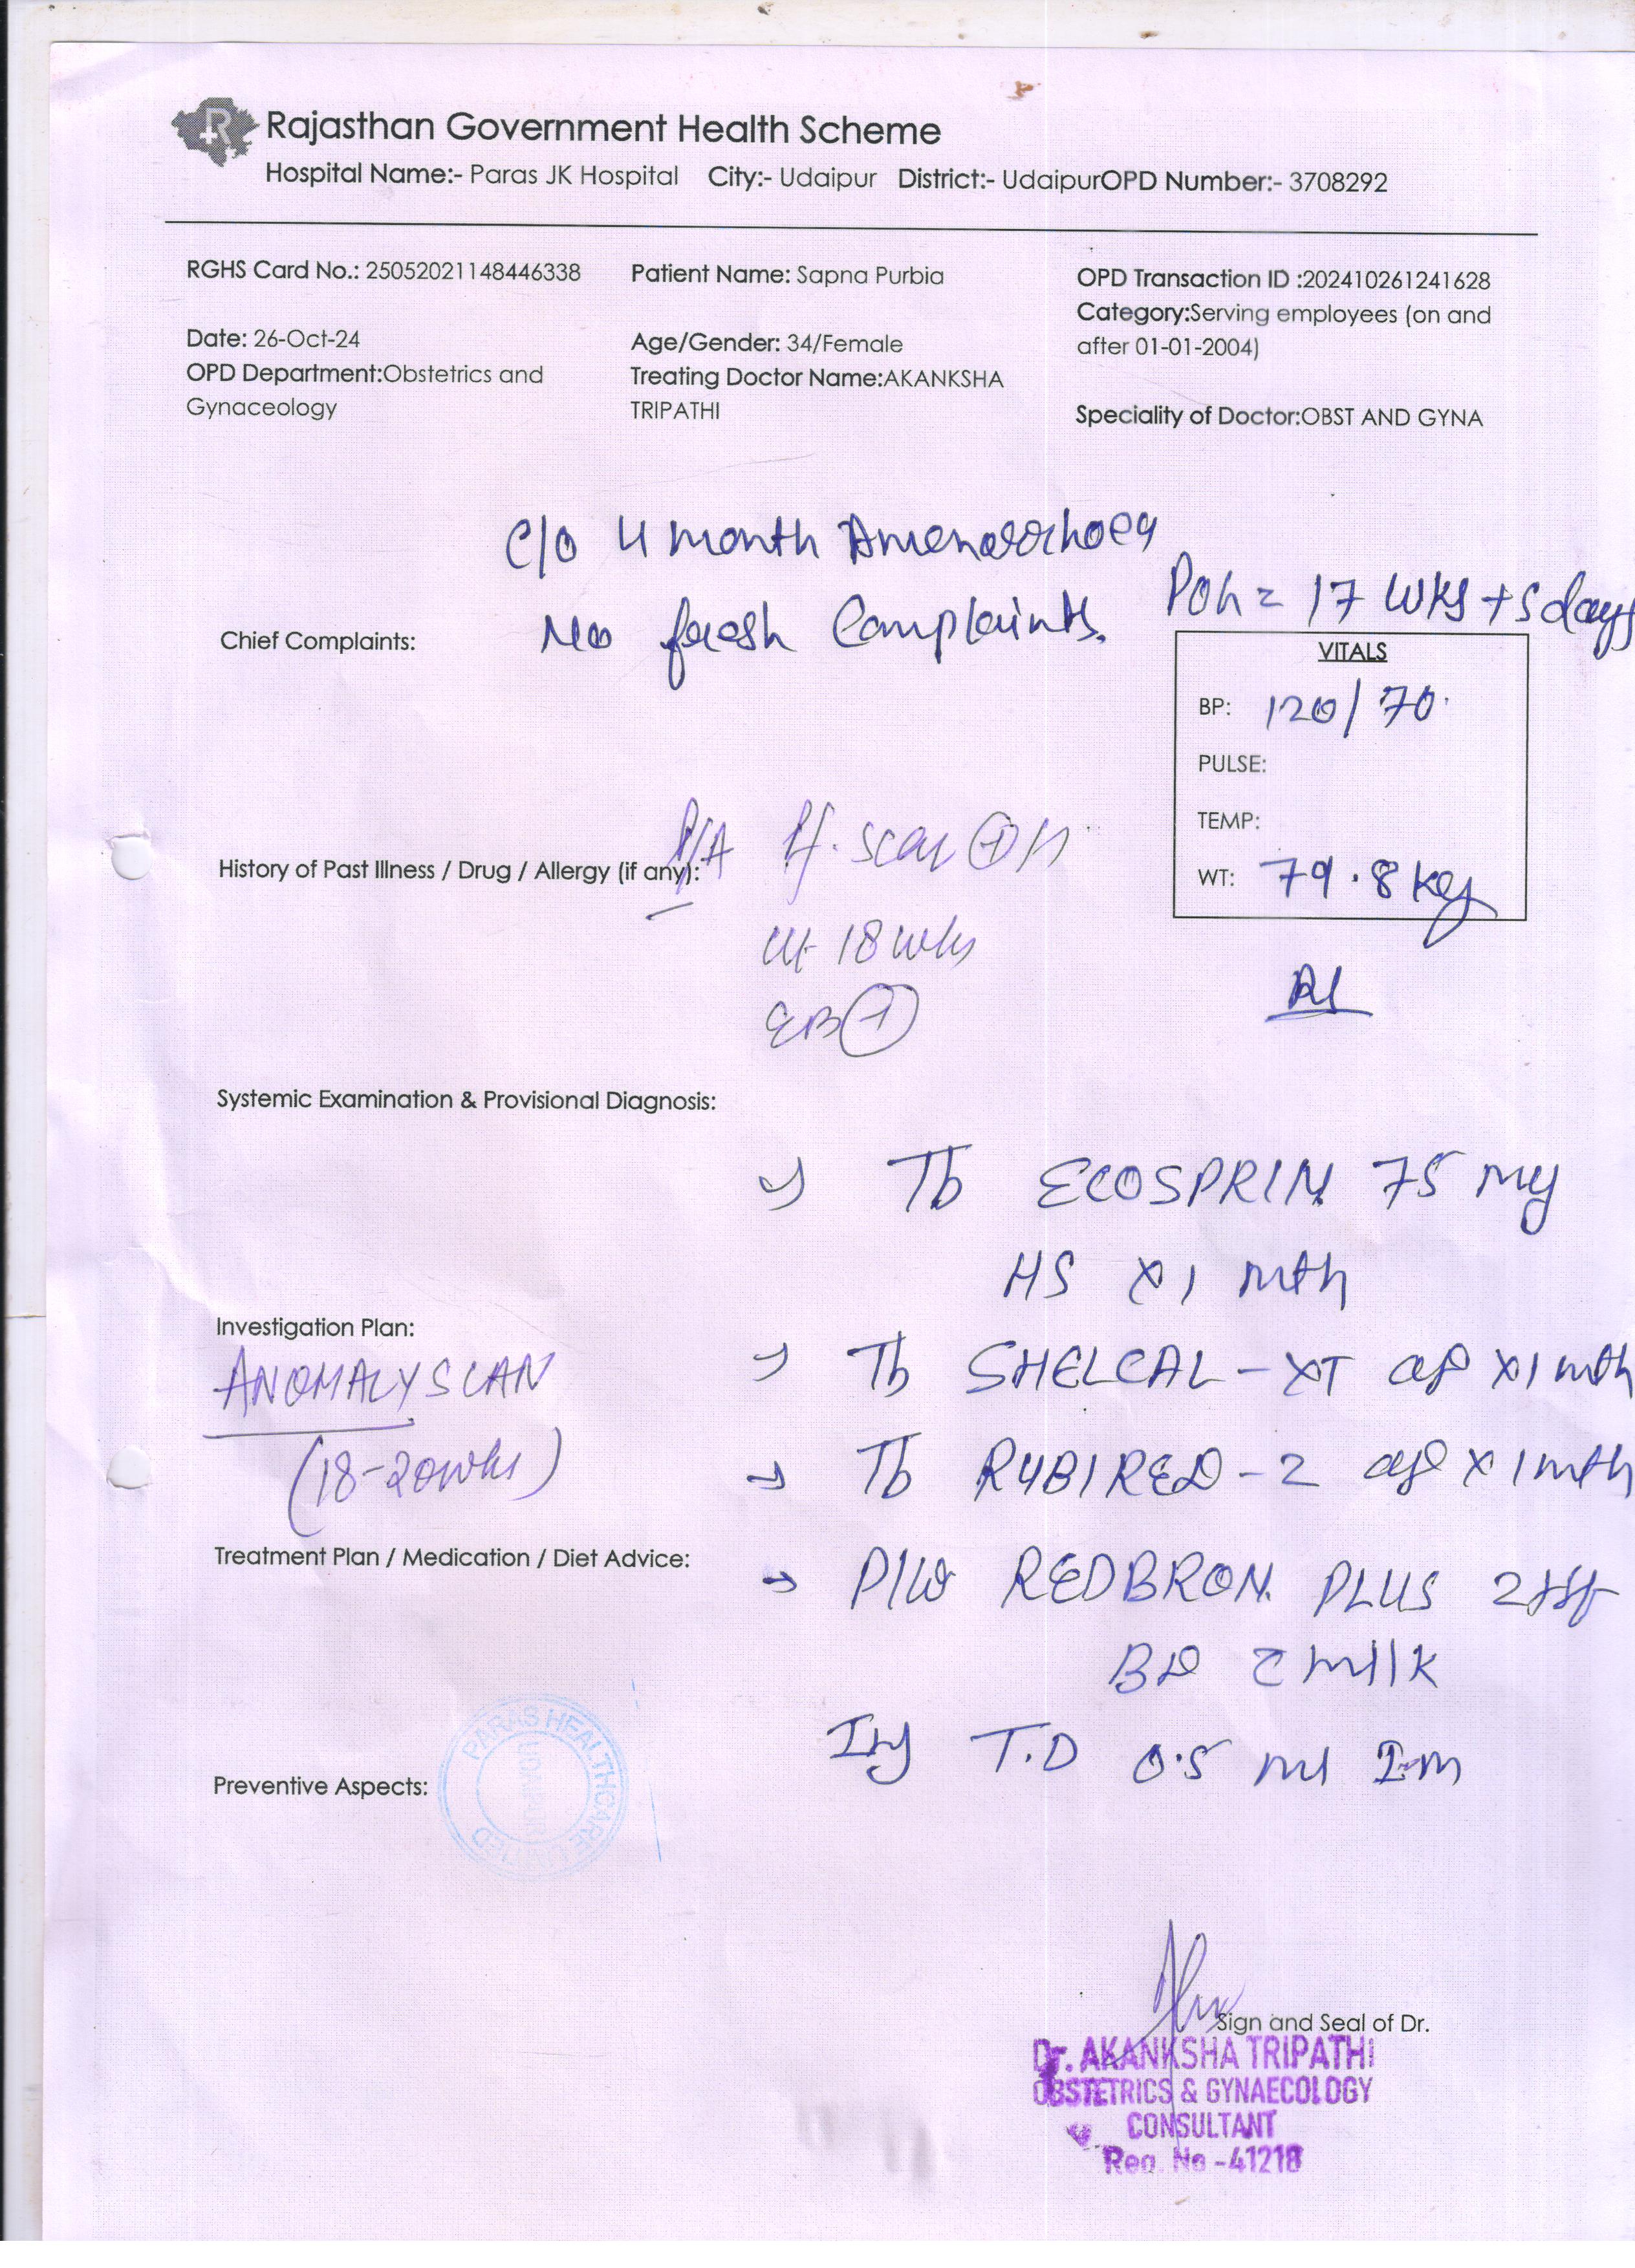 Rajasthan Government Health Scheme
Hospital Name:- Paras JK Hospital City:- Udaipur District:- UdaipurOPD Number:- 3708292
RGHS Card No.: 25052021148446338
Patient Name: Sapna Purbia
OPD Transaction ID :202410261241628
Category:Serving employees (on and
after 01-01-2004)
Date: 26-Oct-24
Age/Gender: 34/Female
OPD Department:Obstetrics and
Gynaceology
Treating Doctor Name:AKANKSHA
TRIPATHI
Speciality of Doctor:OBST AND GYNA
C/O 4 month Amenorrhoea
POG = 17 wks + 5 days
Chief Complaints:
No fresh Complaints.
VITALS
BP: 120/70
PULSE:
TEMP:
WT: 79.8 kg
History of Past Illness / Drug / Allergy (if any):
P/A Pf. scar ⊕ H
Ut 18 wks
EB ⊕
Systemic Examination & Provisional Diagnosis:
Tb ECOSPRIN 75 mg
HS x 1 mth
Investigation Plan:
ANOMALY SCAN
(18-20wks)
→ Tb SHELCAL-XT OD x 1 mth
→ Tb RUBIRED-2 OD x 1 mth
Treatment Plan / Medication / Diet Advice:
→ REDBRON PLUS 2tsf
BD c milk
Inj T.D 0.5 ml I.M
Preventive Aspects:
PARAS HEALTHCARE LIMITED
UDAIPUR
Sign and Seal of Dr.
Dr. AKANKSHA TRIPATHI
OBSTETRICS & GYNAECOLOGY
CONSULTANT
Reg. No -41218